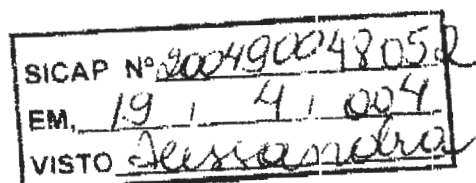 SICAP Nº 200490048052
EM, 19 , 4 , 004
VISTO Alessandra